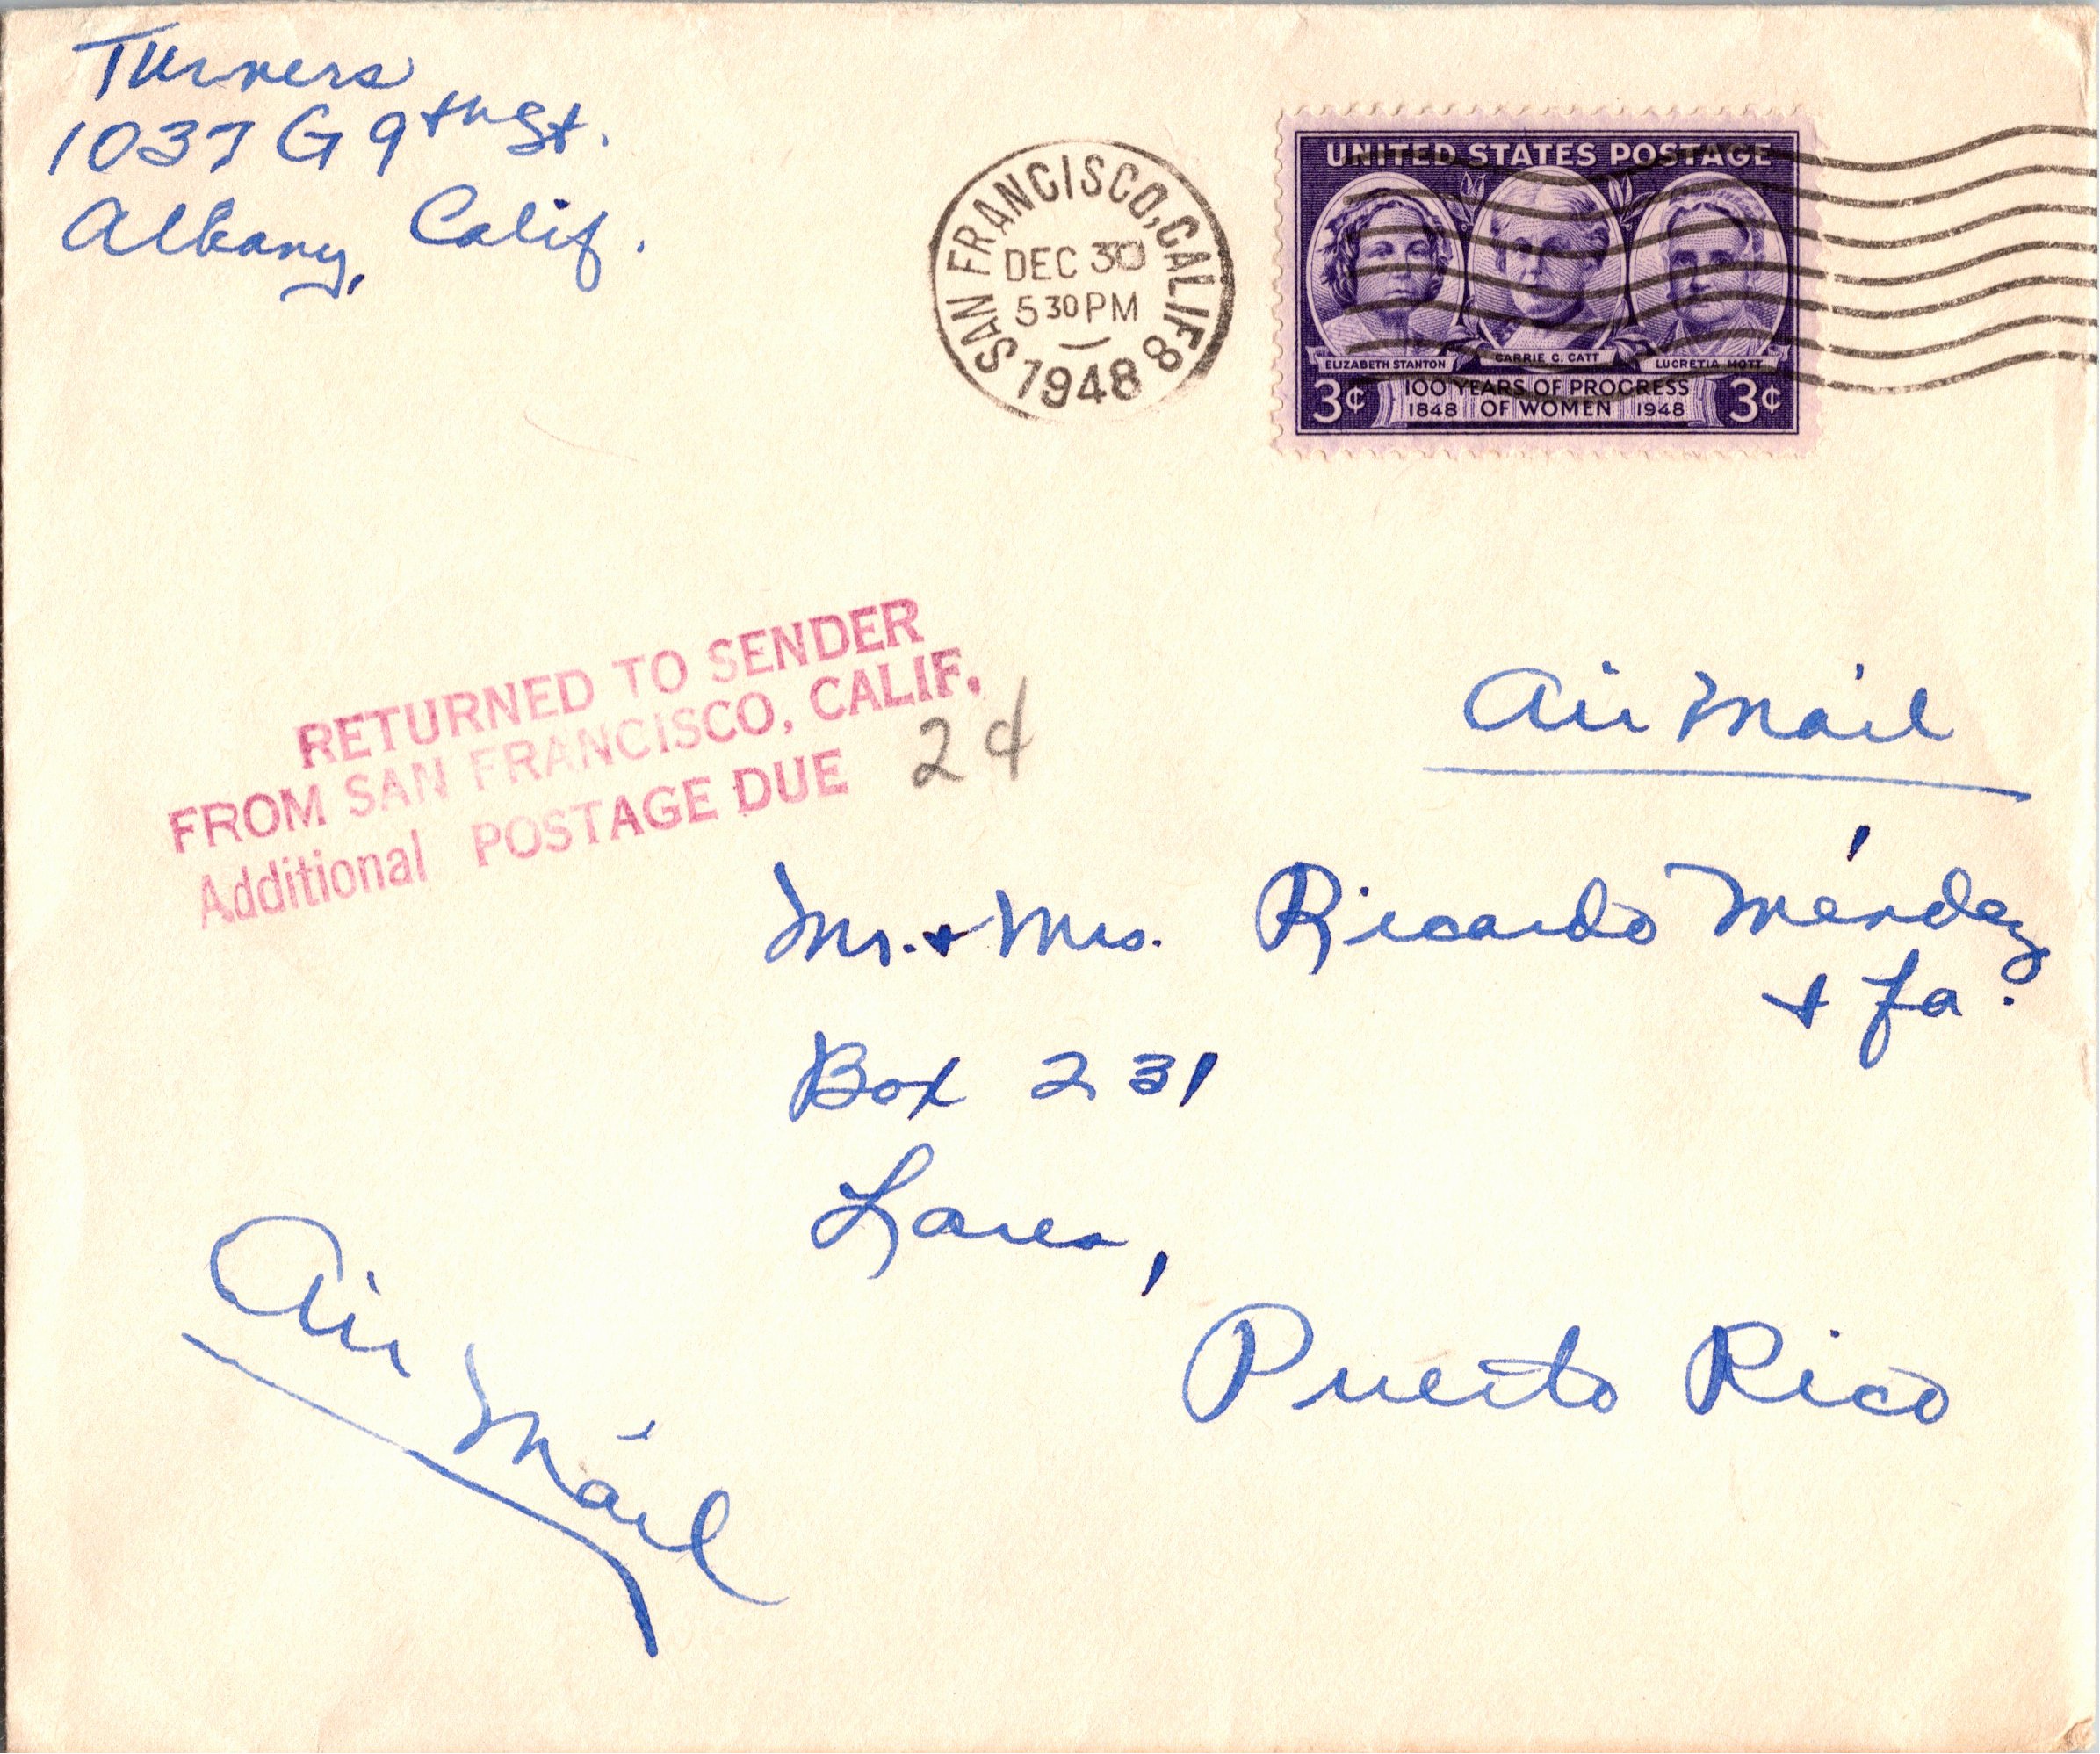 Turners
1037 G 9th St.
Albany, Calif.
SAN FRANCISCO, CALIF 8
DEC 30
5 30 PM
1948
UNITED STATES POSTAGE
ELIZABETH STANTON
CARRIE C. CATT
LUCRETIA MOTT
3¢ 100 YEARS OF PROGRESS 3¢
1848 OF WOMEN 1948
RETURNED TO SENDER
FROM SAN FRANCISCO, CALIF.
Additional POSTAGE DUE 2¢
Air Mail
Mr. + Mrs. Ricardo Méndez
+ fa.
Box 231
Lares,
Puerto Rico
Air Mail